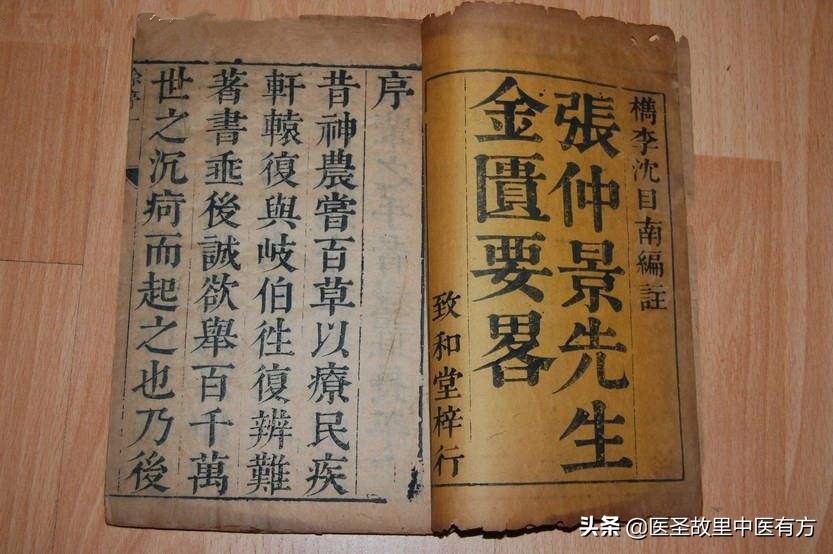 檇李沈目南編註
張仲景先生
金匱要畧
致和堂梓行
序
昔神農嘗百草以療民疾
軒轅復與岐伯徃復辨難
著書垂後誠欲舉百千萬
世之沉疴而起之也乃後
头条 @医圣故里中医有方